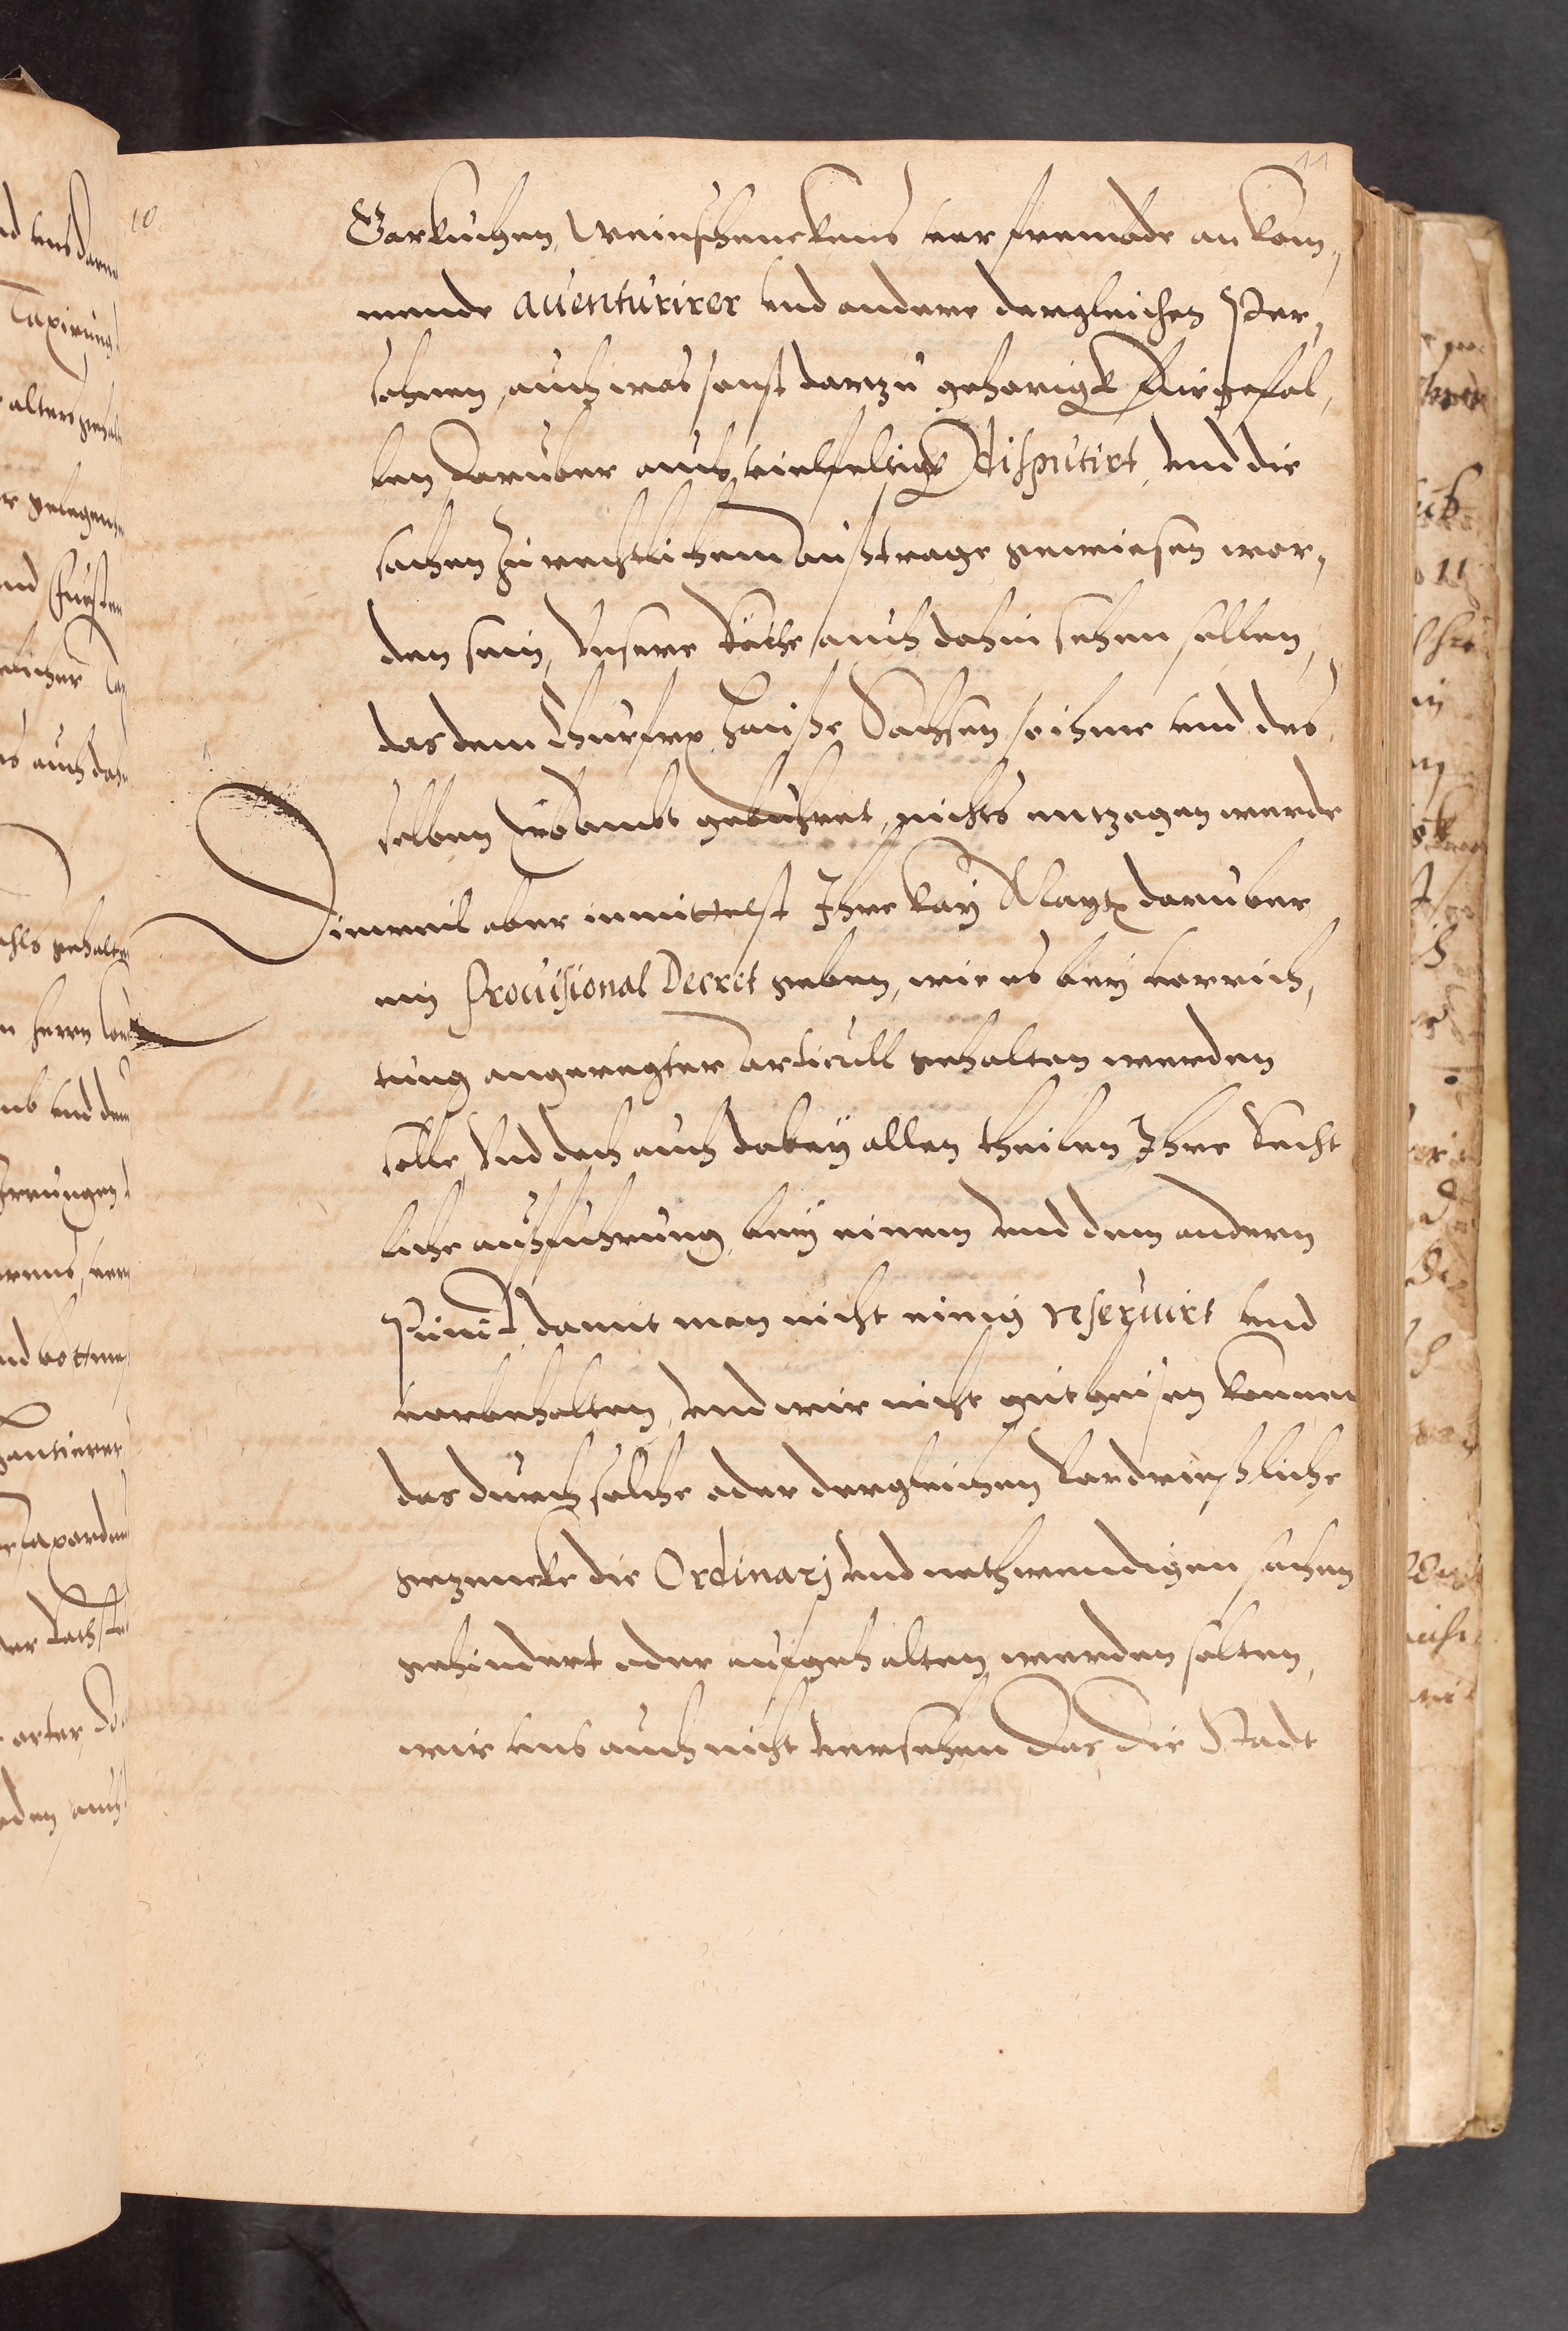 11
10.
Garkuchen, Weinschenckens vor frembde an kom,
mende auenturirer vnd andere dergleichen Per,
sohnen, auch was sonst darzu gehorigk furgefal,
len daruber auch vielfeltigk disputirt, vnd die
sachen zu rechtlichem außtrage gewiesen wor,
den sein, Vnsere Räthe auch dahin sehen sollen,
das dem Churfn hauße Sachsen, so ihme vnd des
selben Erbambt gebuhret, nichts entzogen werde
Dieweil aber inmittelst Ihre Kay Maytt daruber
ein Prouisional Decret geben, wie es bey verrich,
tung angeregter articull gehalten werden
solle, Vnd doch auch dabey allen theilen Ihre Recht
liche ausfuhrung bey einem vnd dem andern
Punct, damit man nicht einig reseruirt vnd
vorbehalten, vnd wir nicht gutheisen konnen
das durch solche oder dergleichen verdrießliche
gezencke die Ordinarj vnd nothwendigen sachen
gehindert oder aufgehalten werden solten,
wir vns auch nicht versehen das die Stadt